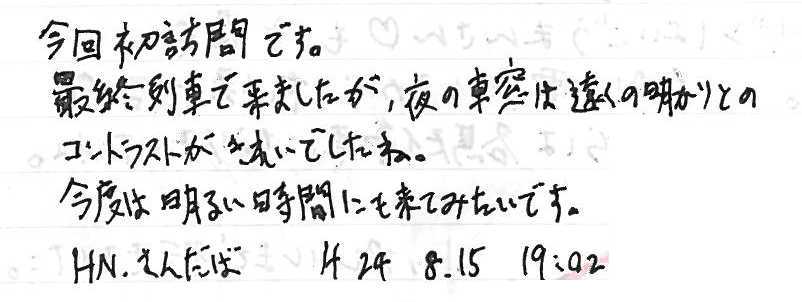 今回初訪問です。
最終列車で来ましたが、夜の車窓は遠くの明かりとの
コントラストがきれいでしたね。
今度は明るい時間にも来てみたいです。
HN.さんだば H24 8.15 19:02